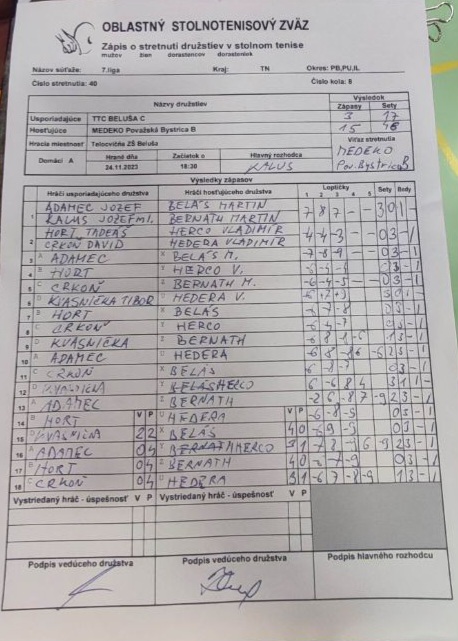 OBLASTNÝ STOLNOTENISOVÝ ZVÄZ
Zápis o stretnutí družstiev v stolnom tenise
mužov žien dorastencov dorasteniek
Názov súťaže: 7.liga Kraj: TN Okres: PB,PU,IL
Číslo stretnutia: 40 Číslo kola: 8
Názvy družstiev Výsledok
Zápasy Sety
Usporiadajúce TTC BELUŠA C 3 17
Hosťujúce MEDEKO Považská Bystrica B 15 48
Hracia miestnosť Telocvičňa ZŠ Beluša Víťaz stretnutia
Domáci A Hraný dňa Začiatok o Hlavný rozhodca MEDEKO
24.11.2023 18:30 KALUS Pov. Bystrica B
Výsledky zápasov
Hráči usporiadajúceho družstva Hráči hosťujúceho družstva Loptičky Sety Body
1 2 3 4 5
1 ADAMEC JOZEF BELÁS MARTIN
KALUS JOZEF ML. BERNÁTH MARTIN 7 8 7 - - 3 0 1 -
2 HORT TADEÁŠ HERCO VLADIMÍR
CRKOŇ DAVID HEDERA VLADIMÍR -4 -4 -3 - - 0 3 - 1
3 A ADAMEC X BELÁS M. -7 -8 -9 - - 0 3 - 1
4 B HORT HERCO V. 0 3 - 1
5 C CRKOŇ BERNATH M. -6 -4 -5 - - 0 3 - 1
6 D KVASNIČKA TIBOR HEDERA V.
7 B HORT X BELÁS 0 3 - 1
8 C CRKOŇ HERCO 0 3 - 1
9 D KVASNIČKA BERNATH 1 3 - 1
10 A ADAMEC HEDERA 2 3 - 1
11 C CRKOŇ X BELÁS -6 -8 -7 0 3 - 1
12 D HERCO 3 1 1 -
13 A ADAMEC BERNATH 2 3 - 1
14 B HORT V P HEDERA V P -6 -8 -5 0 3 - 1
15 D KVASNIČKA 2 2 X BELÁS 4 0 -6 -9 -9 0 3 - 1
16 A ADAMEC 0 4 HERCO 3 1 2 3 - 1
17 B HORT 0 4 BERNATH 4 0 0 3 - 1
18 C CRKOŇ 0 4 HEDERA 3 1 -6 7 -8 -9 1 3 - 1
Vystriedaný hráč - úspešnosť V P Vystriedaný hráč - úspešnosť V P
Podpis vedúceho družstva Podpis vedúceho družstva Podpis hlavného rozhodcu